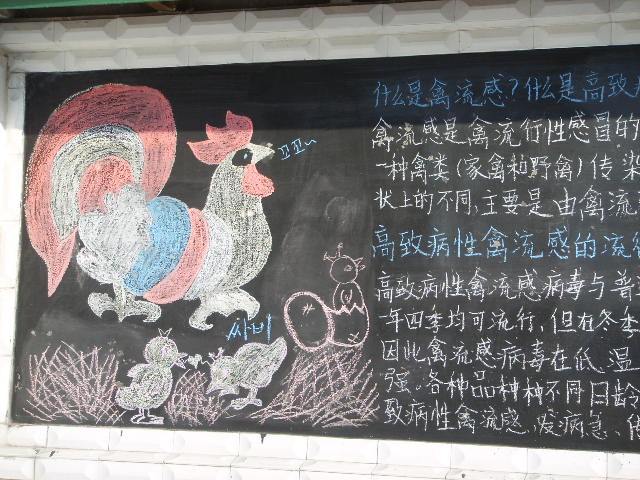 꼬꼬~
싸비
什么是禽流感?什么是高致
禽流感是禽流行性感冒的
一种禽类(家禽和野禽)传染
状上的不同,主要是由禽流
高致病性禽流感的流行
高致病性禽流感病毒与普
年四季均可流行,但在冬季
因此禽流感病毒在低温
强。各种品种种不同日龄
致病性禽流感,发病急、传